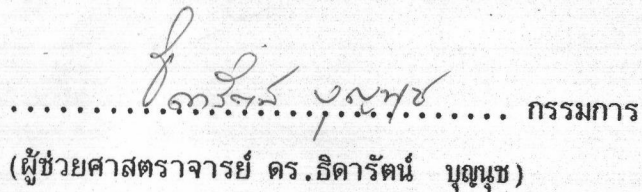 ธิดารัตน์ บุญนุช
........................................ กรรมการ
(ผู้ช่วยศาสตราจารย์ ดร.ธิดารัตน์ บุญนุช)